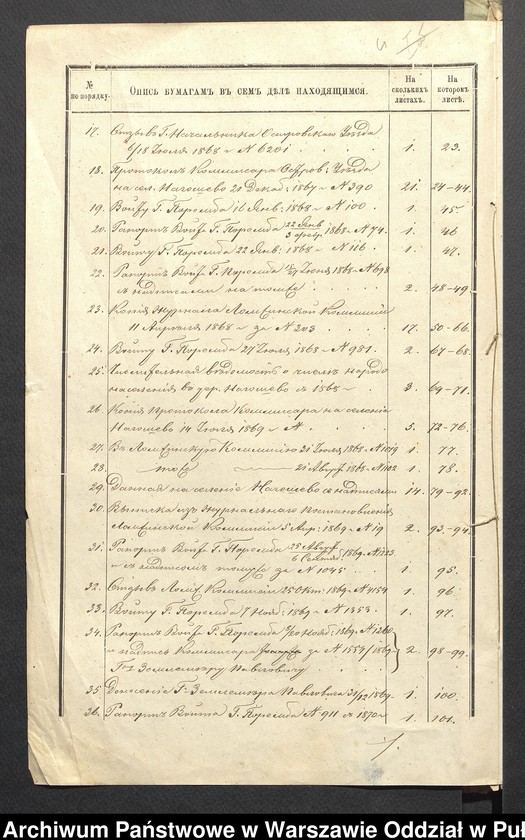 № по порядку.
Опись бумагамъ въ семъ дѣлѣ находящимся.
На сколькихъ листахъ.
На которомъ листѣ.
17. Отзывъ Г. Начальника Островскаго Уѣзда
6/18 Іюля 1868 г. № 6201 1. 23.
18. Протоколъ Коммисара Остров: Уѣзда
на сел. Нагошево 20 Декаб: 1867 г. № 390 21. 24-44.
19. Войту Г. Поремба 16 Янв: 1868 г. № 100. 1. 45.
20. Рапортъ Войта Г. Поремба 22 Янв / 3 февр. 1868 г. № 74. 1. 46
21. Войту Г. Поремба 22 Янв: 1868 г. № 116. 1. 47.
22. Рапортъ Войта Г. Поремба Іюля 1868 г. № 698
съ надписями на томже 2. 48-49
23. Копія Журнала Ломжинской Коммисіи
11 Апрѣля 1868 г. за № 203 17. 50-66.
24. Войту Г. Поремба 27 Іюля 1868 г. № 981. 2. 67-68.
25. вѣдомость о числѣ народо
населенія въ дер. Нагошево въ 1868 г. 3. 69-71.
26. Копія протокола Коммисара на селеніе
Нагошево 14 Іюля 1869 г. № 5. 72-76.
27. Въ Ломжинскую Коммисію 21 Іюля 1868 г. № 1. 77.
28. тоже 21 Август. 1868 г. № 1. 78.
29. Данная на селеніе Нагошево съ надписями 14. 79-92.
30. Выписка изъ Журнальнаго Постановленія
Ломжинской Коммисіи 5 Апр: 1869 г. № 19 2. 93-94.
31. Рапортъ Войта Г. Поремба 25 Август / 6 Сентяб. 1869 г. №
и съ надписью за № 1045 1. 95.
32. Отзывъ Ломж. Коммисіи 25 Окт: 1869 г. № 4154 1. 96.
33. Войту Г. Поремба 7 Нояб: 1869 г. № 1353. 1. 97.
34. Рапортъ Войта Г. Поремба Нояб: 1869 г. № 1260
и надпись Коммисара за № 1553/1869 2. 98-99.
Г. Землемѣру Павловичу
35. Донесеніе Г. Землемѣра Павловича 31/12 1869 г. 1. 100.
36. Рапортъ Войта Г. Поремба № 911 съ 1870 г. 1. 101.
Archiwum Państwowe w Warszawie Oddział w Puł